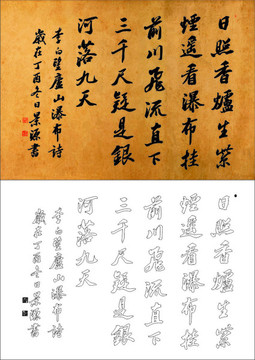 日照香爐生紫
煙遙看瀑布挂
前川飛流直下
三千尺疑是銀
河落九天
李白望廬山瀑布詩
歲在丁酉冬日景源書
日照香爐生紫
煙遙看瀑布挂
前川飛流直下
三千尺疑是銀
河落九天
李白望廬山瀑布詩
歲在丁酉冬日景源書